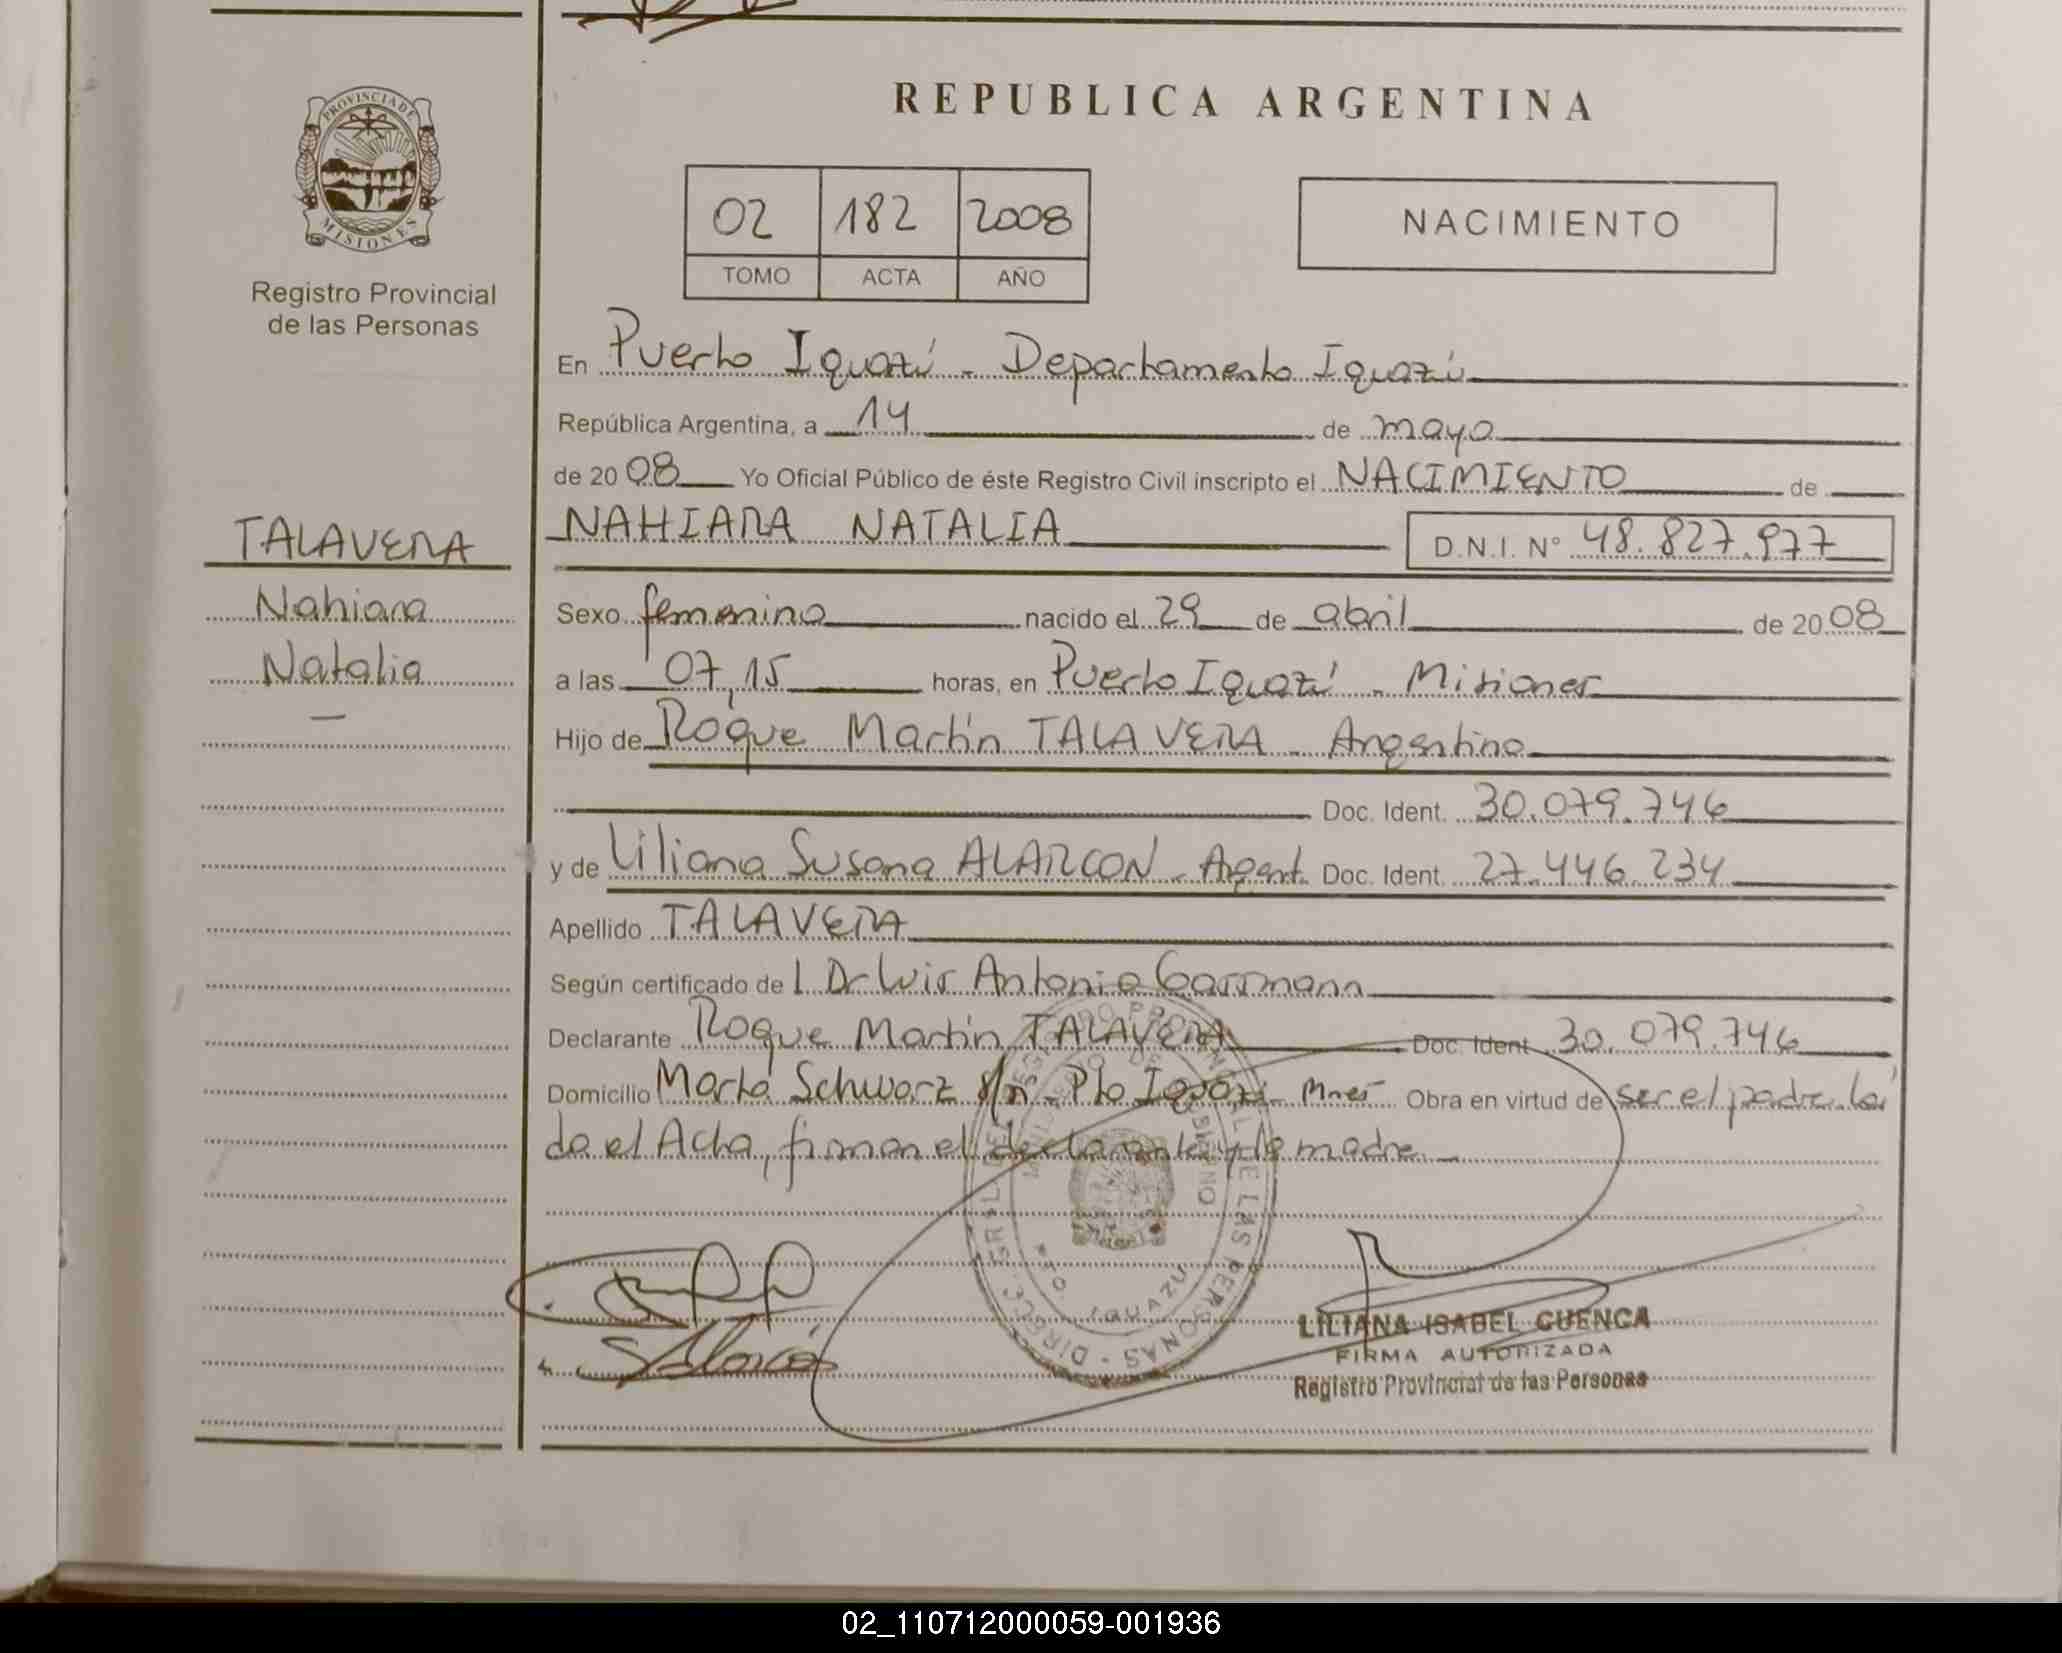 REPUBLICA ARGENTINA
PROVINCIA DE MISIONES
Registro Provincial
de las Personas
02 182 2008
TOMO ACTA AÑO
NACIMIENTO
En Puerto Iguazú - Departamento Iguazú
República Argentina, a 14 de mayo
de 2008 Yo Oficial Público de éste Registro Civil inscripto el NACIMIENTO de
TALAVERA
Nahiara
Natalia
NAHIARA NATALIA D.N.I. Nº 48.827.977
Sexo femenino nacido el 29 de abril de 2008
a las 07,15 horas, en Puerto Iguazú - Misiones
Hijo de Roque Martín TALAVERA - Argentino
Doc. Ident. 30.079.746
y de Liliana Susana ALARCON - Argent. Doc. Ident. 27.446.234
Apellido TALAVERA
Según certificado de l Dr Luis Antonio
Declarante Roque Martín TALAVERA Doc. Ident. 30.079.746
Domicilio Marta Schwarz s/n - Pto Iguazú - Mnes Obra en virtud de ser el padre. Leí
da el Acta, firman el declarante y la madre -
PTO IGUAZU
S Alarcón
LILIANA ISABEL CUENCA
FIRMA AUTORIZADA
Registro Provincial de las Personas
02_110712000059-001936